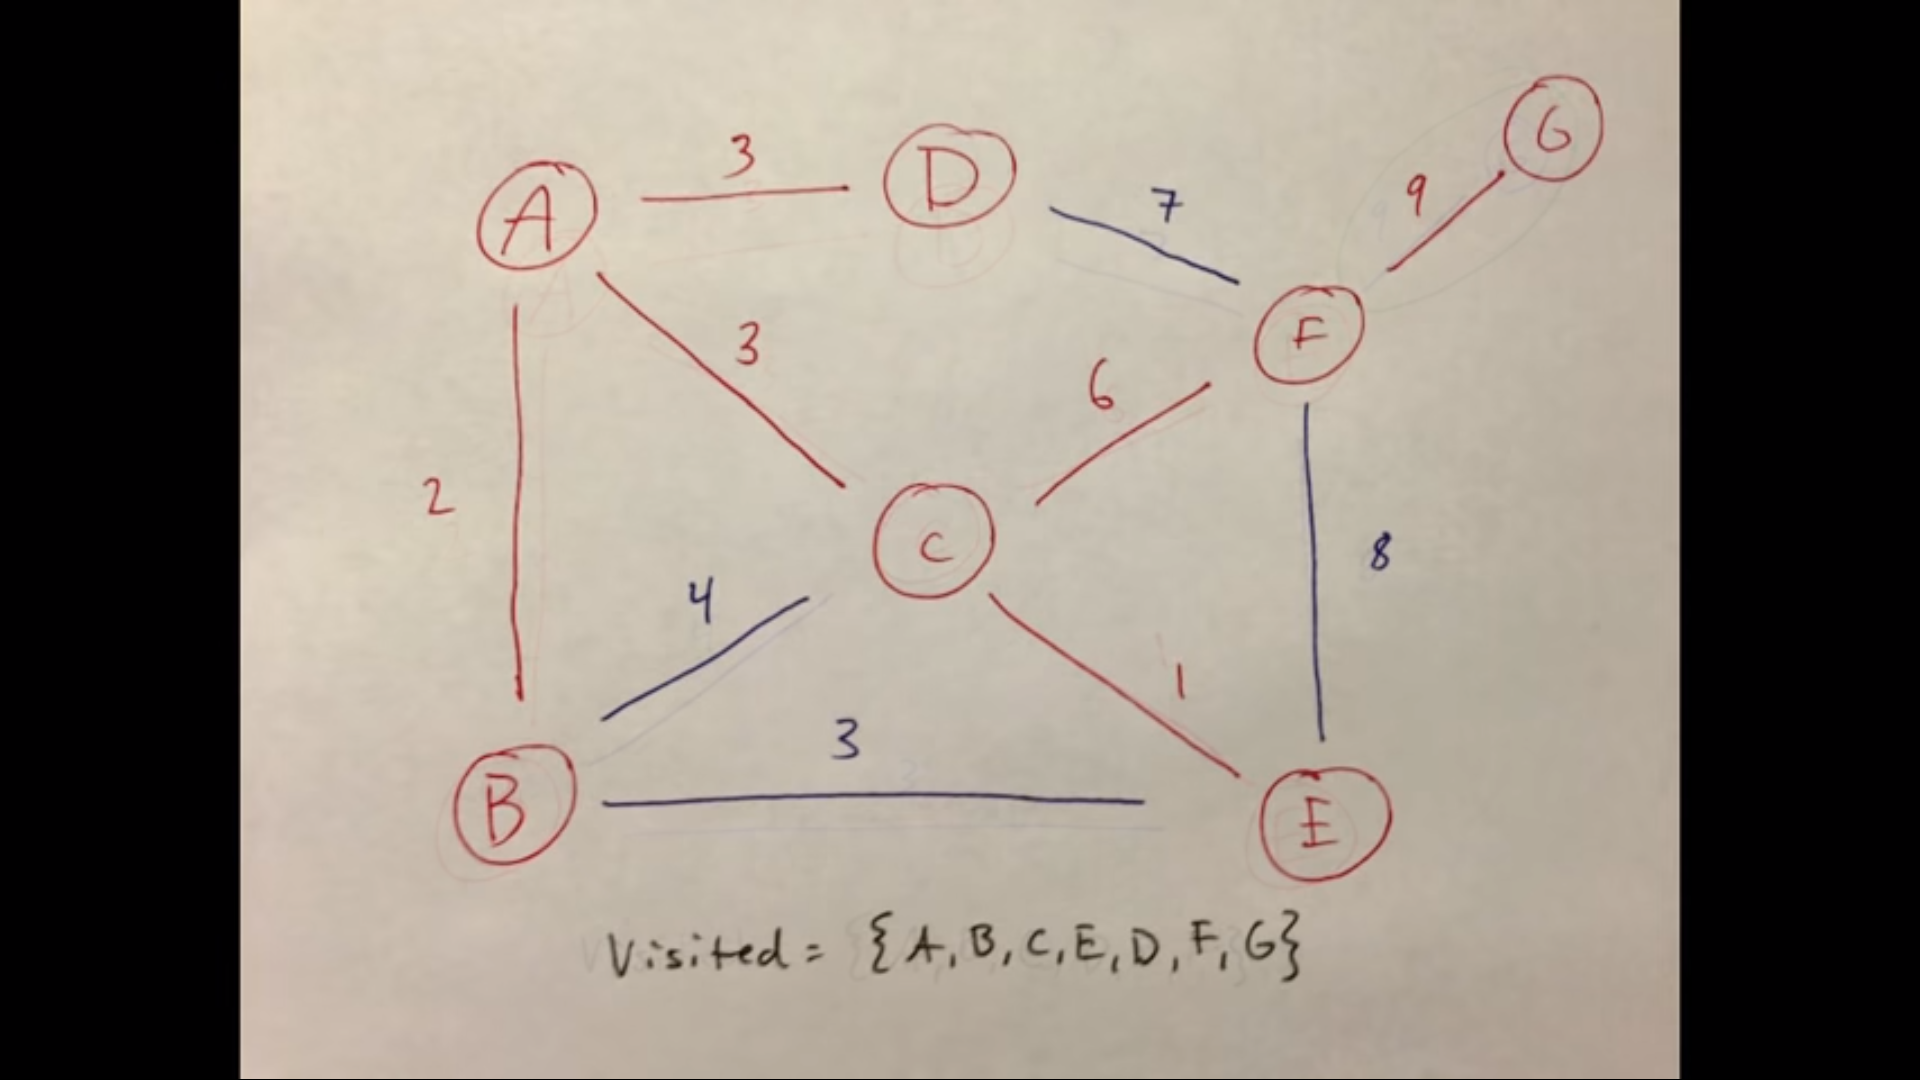 G
3
D
9
7
A
F
3
6
2
C
8
4
1
3
B
E
Visited = {A, B, C, E, D, F, G}